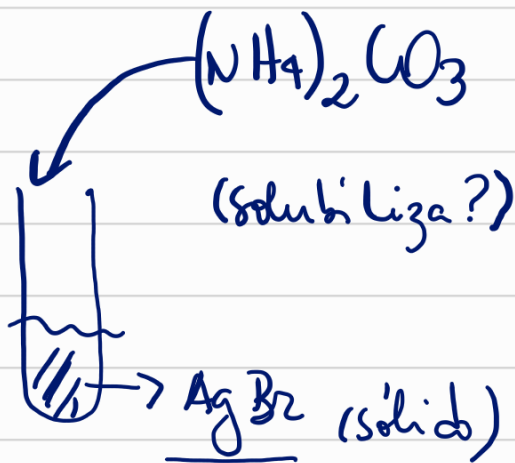 (NH4)2 CO3
(solubiliza?)
AgBr (sólido)